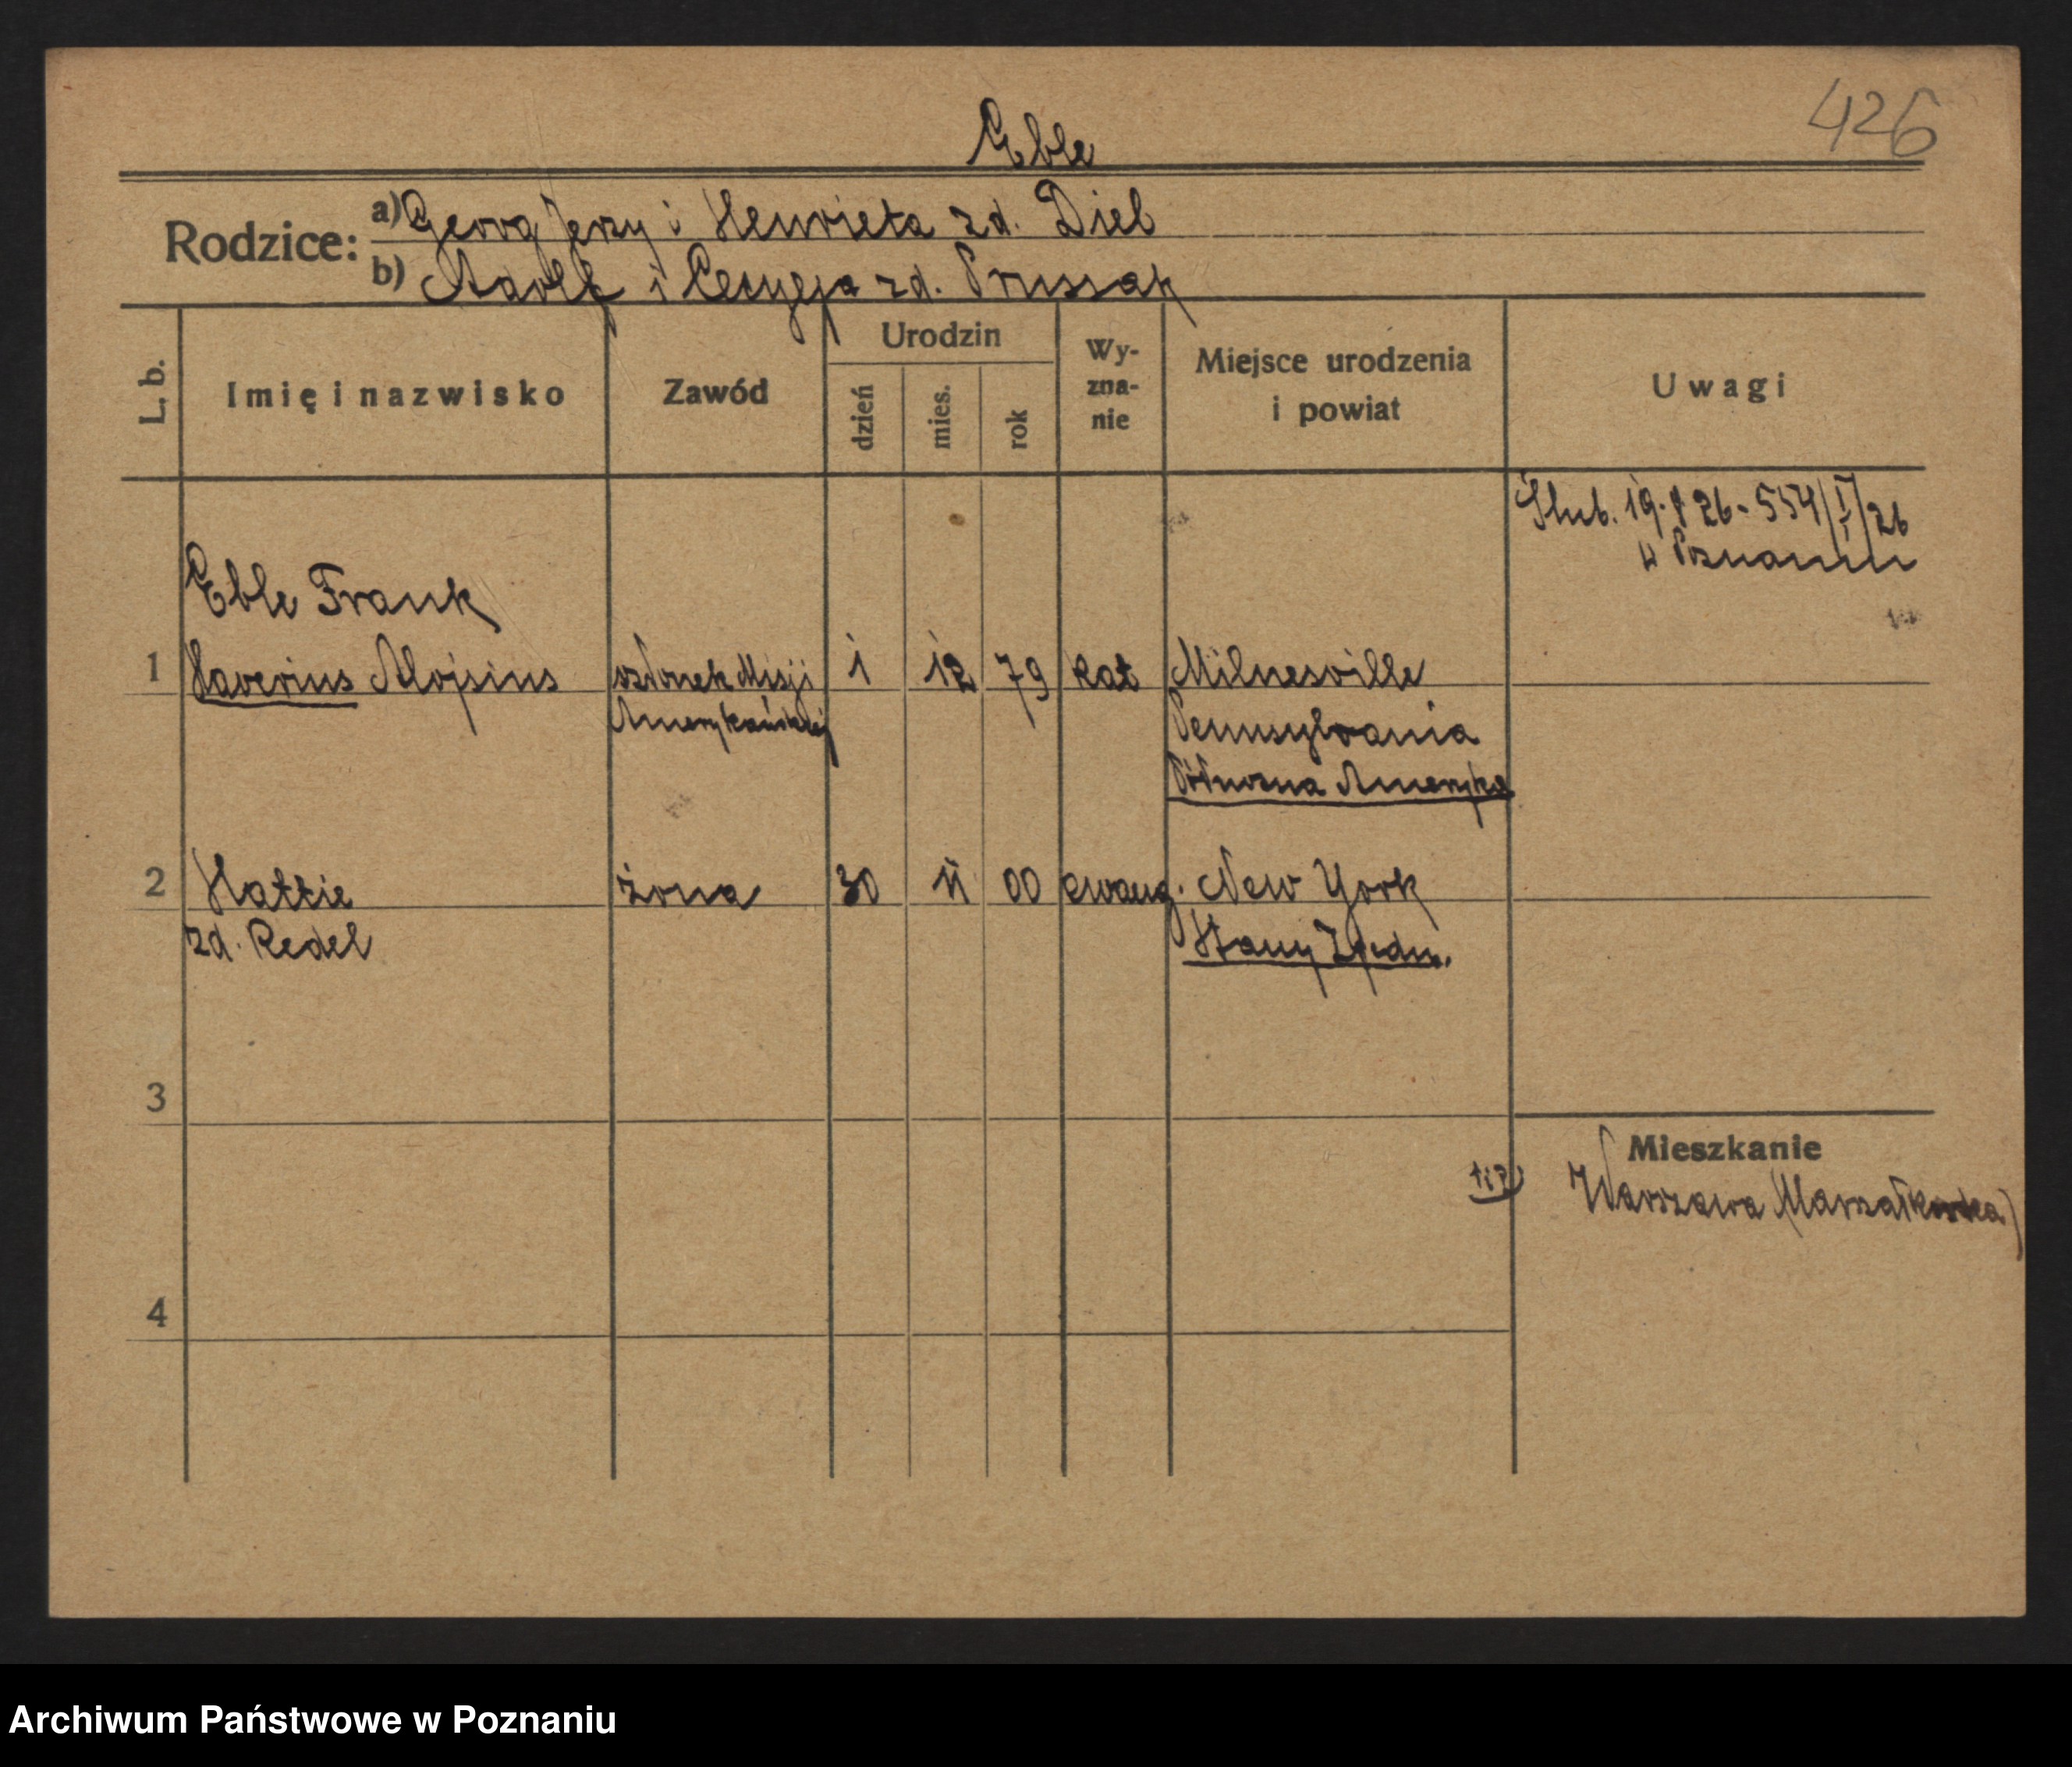 426
Eble
Rodzice: a) Georg Jerzy i Henrieta zd. Diel
b) Adolf i Cecylja zd. Prussak
L. b.
Imię i nazwisko
Zawód
Urodzin
dzień
mies.
rok
Wy-
zna-
nie
Miejsce urodzenia
i powiat
Uwagi
Ślub. 19. 26 - 554/I/26
w Poznaniu
Eble Frank
1 Xaverius Alojsius członek Misji 1 12 79 kat Milnesville
Amerykańskiej Pennsylvania
Północna Ameryka
2 Hattie żona 30 11 00 ewang. New York
zd. Redel Stany Zjedn.
3
Mieszkanie
Warszawa (Marszałkowska)
4
Archiwum Państwowe w Poznaniu